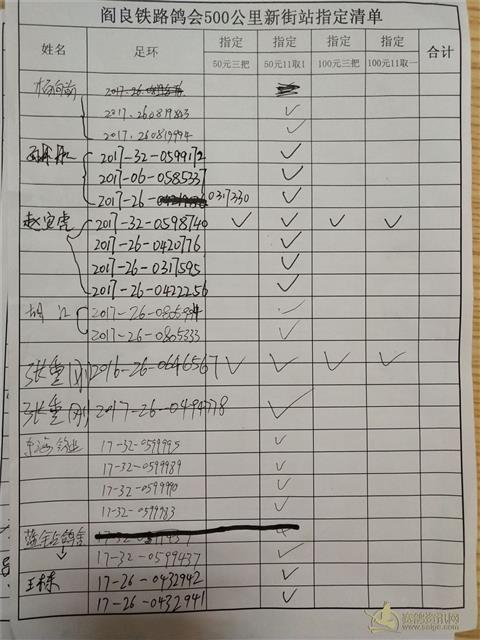 阎良铁路鸽会500公里新街站指定清单
姓名 足环 指定 50元三把 指定 50元11取1 指定 100元三把 指定 100元11取一 合计
2017.26.
2017.260819803 ✓
2017.260819994 ✓
2017-32-0599172 ✓
2017-06-0585337 ✓
2017-26- 0317330 ✓
赵寅虎 2017-32-0598740 ✓ ✓ ✓ ✓
2017-26-0420776 ✓
2017-26-0317595 ✓
2017-26-0422256 ✓
胡江 2017-26- ✓
2017-26-0805333 ✓
张重刚 2016-26-0646567 ✓ ✓ ✓ ✓
张重刚 2017-26-0494778 ✓
东海鸽业 17-32-0599995 ✓
17-32-0599989 ✓
17-32-0599990 ✓
17-32-0599983 ✓
17-32-0599437 ✓
王栋 17-26-0432942 ✓
17-26-0432941 ✓
赛鸽资讯网
www.saige.com